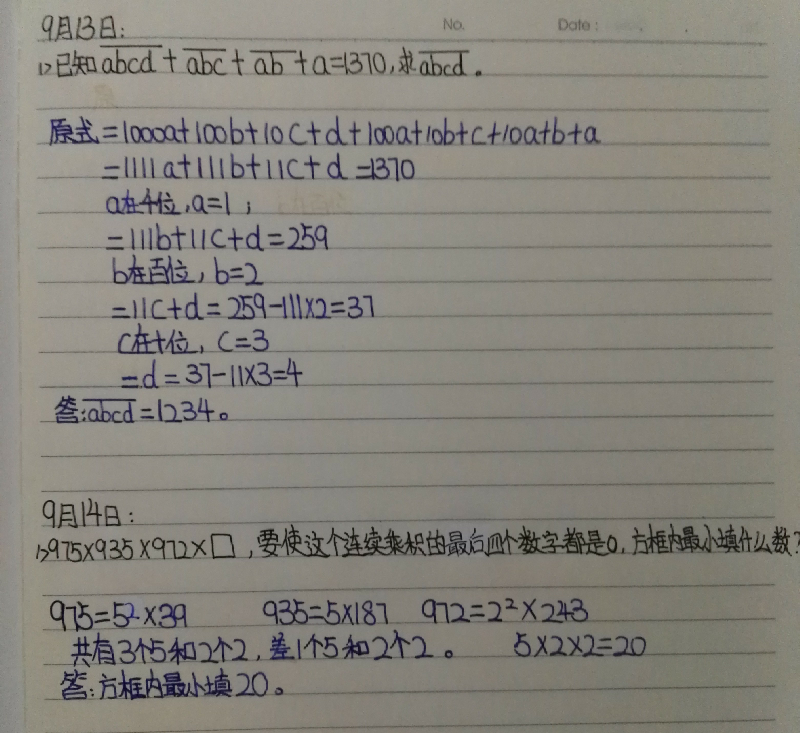 No.
Date :
9月13日:
1>已知abcd+abc+ab+a=1370,求abcd。
原式=1000a+100b+10c+d+100a+10b+c+10a+b+a
=1111a+111b+11c+d=1370
a在千位,a=1;
=111b+11c+d=259
b在百位,b=2
=11c+d=259-111×2=37
c在十位,c=3
=d=37-11×3=4
答:abcd=1234。
9月14日:
1>975×935×972×□,要使这个连续乘积的最后四个数字都是0,方框内最小填什么数?
975=5²×39 935=5×187 972=2²×243
共有3个5和2个2,差1个5和2个2。 5×2×2=20
答:方框内最小填20。